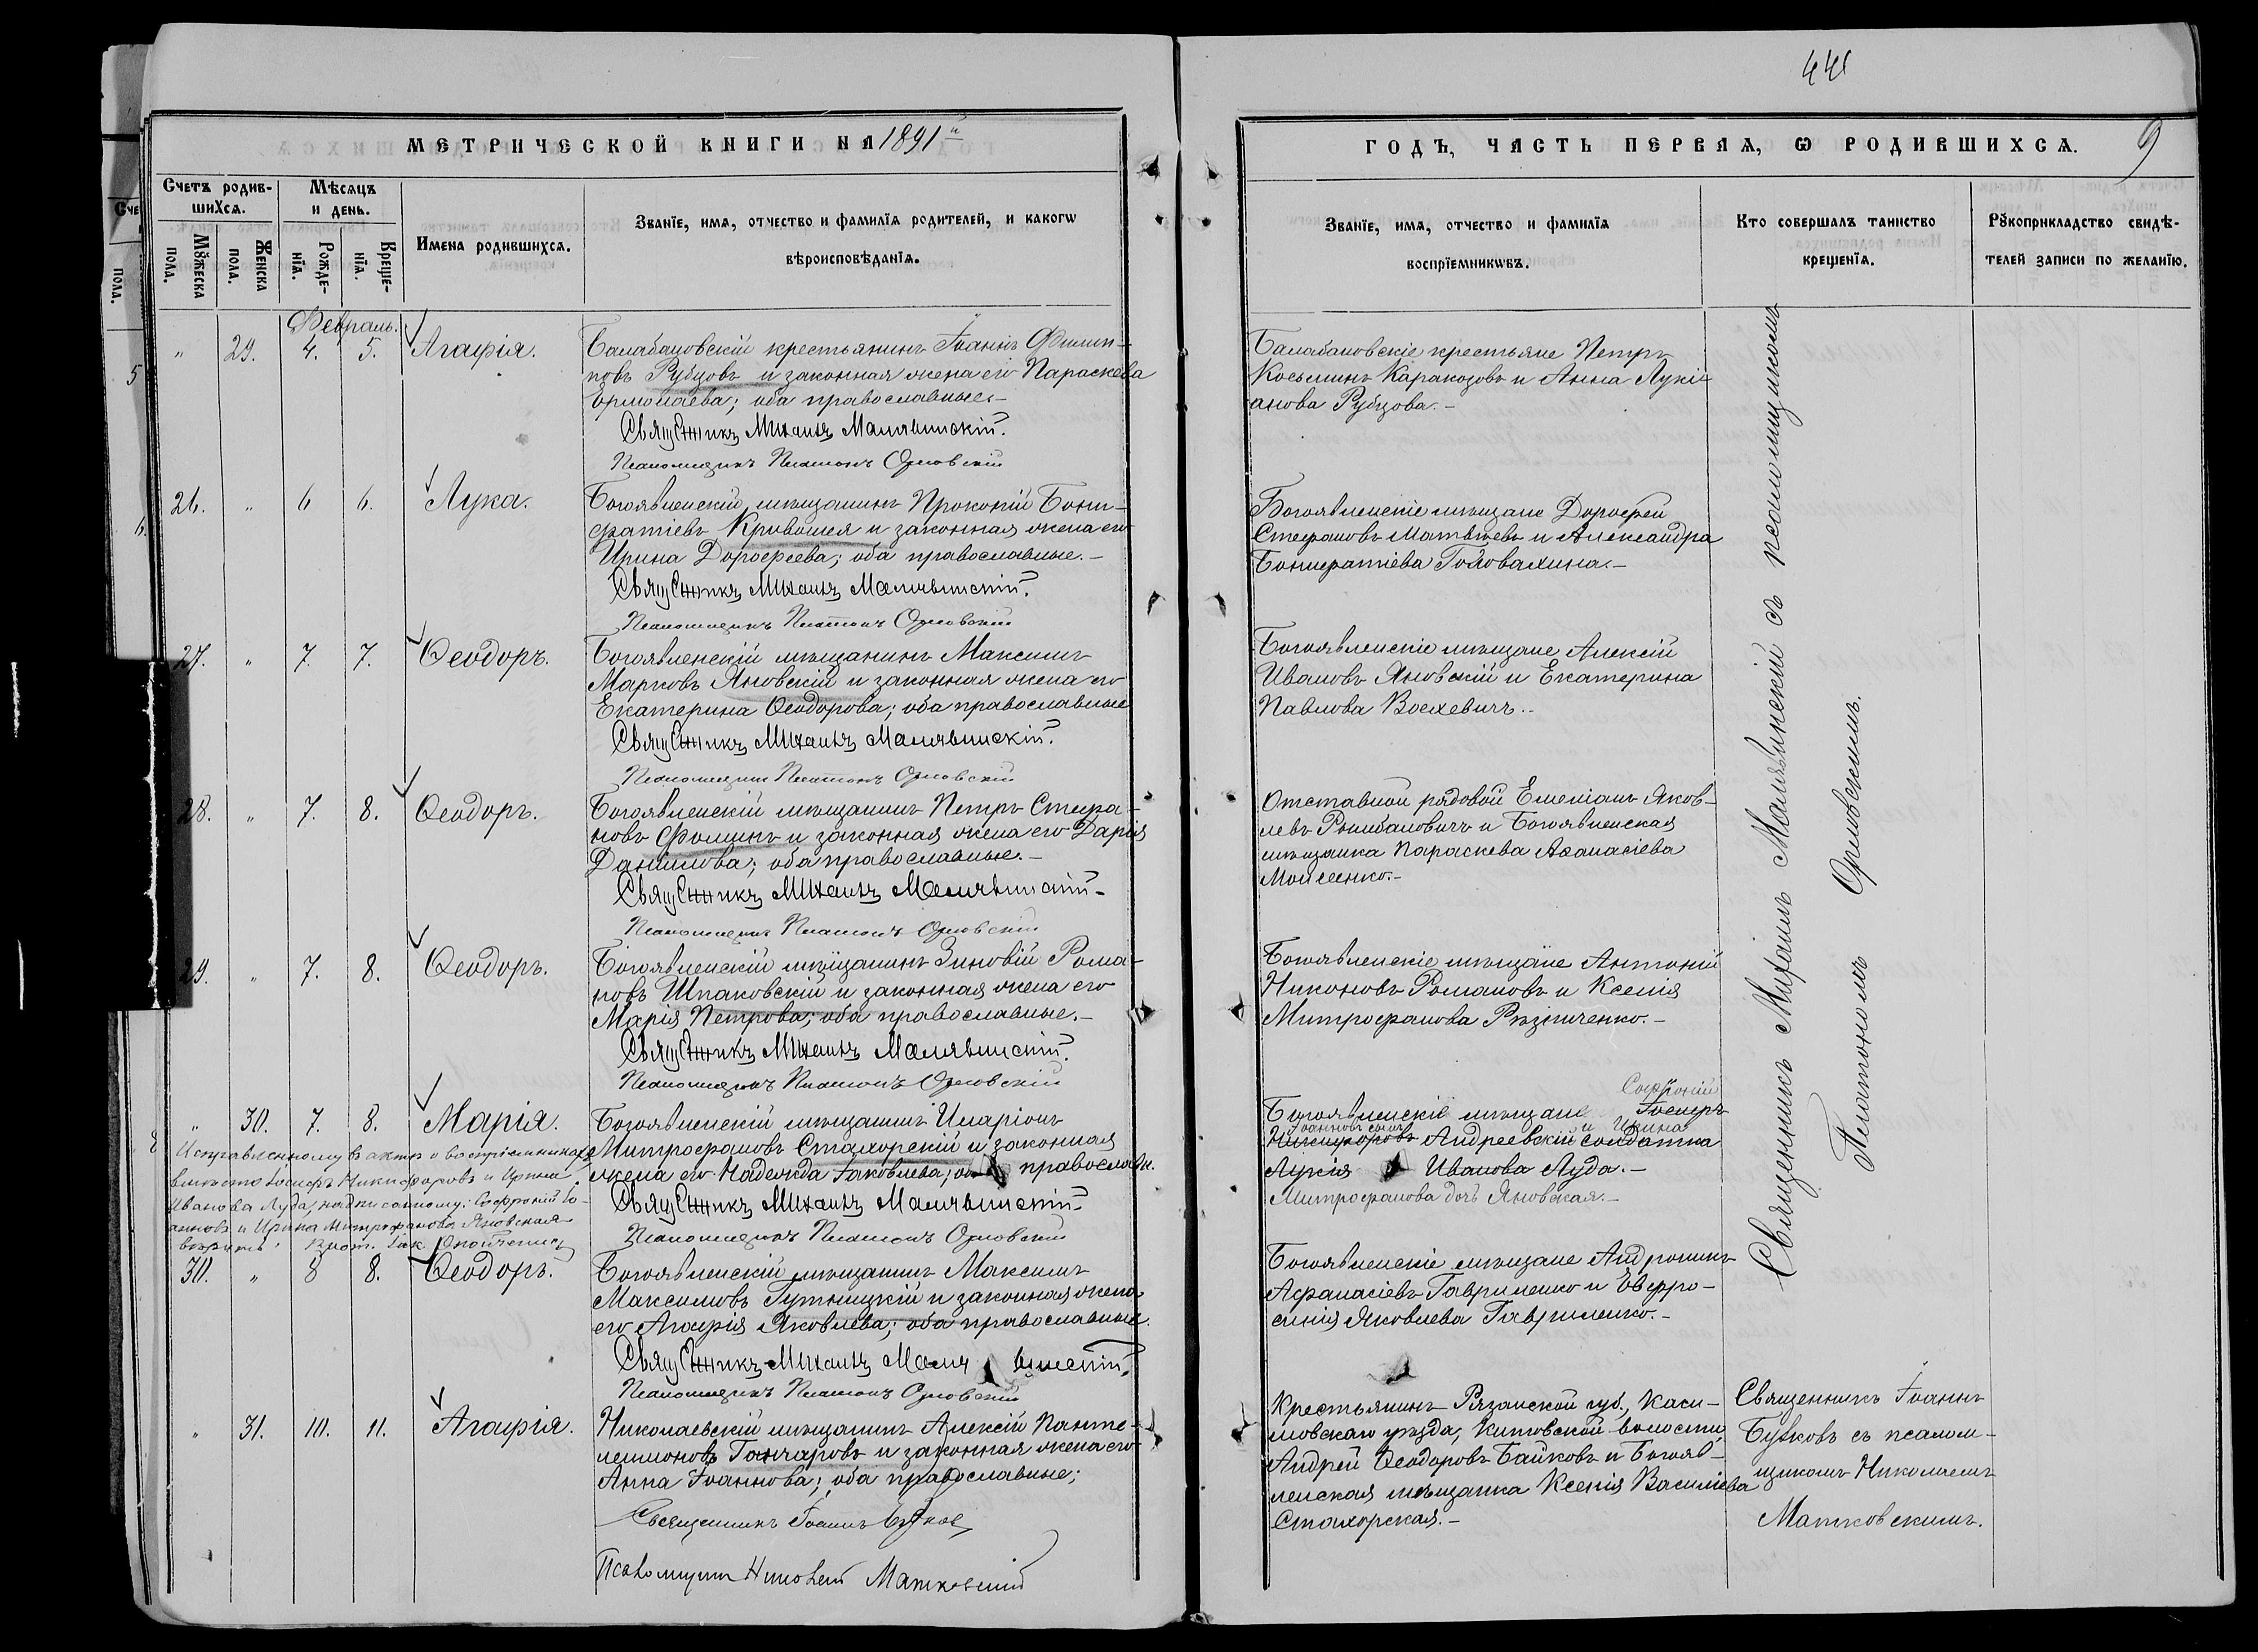 441
МЕТРИЧЕСКОЙ КНИГИ НА 1891й
ГОДЪ, ЧАСТЬ ПЕРВАѦ, Ѡ РОДИВШИХСѦ. 9
Счетъ родив-
шихсѧ.
Мѣсѧцъ
и день.
Мꙋжеска пола.
Женска пола.
Рожде-
нїѧ.
Креще-
нїѧ.
Имена родившихсѧ.
Званїе, имѧ, отчество и фамилїѧ родителей, и какогѡ
вѣроисповѣданїѧ.
Званїе, имѧ, отчество и фамилїѧ
воспрїемникѡвъ.
Кто совершалъ таинство
крещенїѧ.
Рꙋкоприкладство свидѣ-
телей записи по желанїю.
Февраль.
" 29. 4. 5. Агафія.
Балабановскій крестьянинъ Іоаннъ Филип-
повъ Рубцовъ и законная жена его Параскева
Ермолаева; оба православные.-
Священникъ Михаилъ Малявинскій.
Псаломщикъ Платонъ Орловскій
Балабановскіе крестьяне Петръ
Косьминъ Каракозовъ и Анна Лукі-
анова Рубцова.-
26. " 6 6. Лука.
Богоявленскій мѣщанинъ Прокопій Бони-
фатіевъ Кривошея и законная жена его
Ирина Дорофеева; оба православные.-
Священникъ Михаилъ Малявинскій.
Псаломщикъ Платонъ Орловскій
Богоявленскіе мѣщане Дорофей
Стефановъ Матвѣевъ и Александра
Бонифатіева Головахина.-
27. " 7. 7. Ѳеодоръ.
Богоявленскій мѣщанинъ Максимъ
Марковъ Яновскій и законная жена его
Екатерина Ѳеодорова; оба православные
Священникъ Михаилъ Малявинскій.
Псаломщикъ Платонъ Орловскій
Богоявленскіе мѣщане Алексій
Ивановъ Яновскій и Екатерина
Павлова
28. " 7. 8. Ѳеодоръ.
Богоявленскій мѣщанинъ Петръ Стефа-
новъ Фоминъ и законная жена его Дарія
Данилова; оба православные.-
Священникъ Михаилъ Малявинскій-
Псаломщикъ Платонъ Орловскій
Отставной рядовой Емеліанъ Яков-
левъ и Богоявленская
мѣщанка Параскева Аѳанасіева
Моисеенко.-
29. " 7. 8. Ѳеодоръ.
Богоявленскій мѣщанинъ Зиновій Рома-
новъ Шпаковскій и законная жена его
Марія Петрова; оба православные.-
Священникъ Михаилъ Малявинскій.
Псаломщикъ Платонъ Орловскій
Богоявленскіе мѣщане Антоній
Никоновъ Романовъ и Ксенія
Митрофанова Рѣзниченко.-
" 30. 7. 8. Марія.
Богоявленскій мѣщанинъ Иларіонъ
Митрофановъ Стахорскій и законная
жена его Надежда Іаковлева; православн.
Священникъ Михаилъ Малявинскій-
Псаломщикъ Платонъ Орловскій
Исправленному въ актѣ о воспріемникахъ
вмѣсто Іосифъ Никифоровъ и Ирина
Иванова Луда, надписанному: Софроній Іо-
анновъ и Ирина Митрофанова Яновская
вѣрить.
Софроній
Богоявленскіе мѣщане Іосифъ
Іоанновъ сынъ и Ирина
Никифоровъ Андреевскій солдатка
Иванова Луда.-
Митрофанова дочь Яновская.-
30. " 8 8. Ѳеодоръ.
Богоявленскій мѣщанинъ Максимъ
Максимовъ Гутницкій и законная жена
его Агафія Яковлева; оба православные.
Священникъ Михаилъ Малявинскій.
Псаломщикъ Платонъ Орловскій
Богоявленскіе мѣщане Андроникъ
Афанасіевъ Гавриленко и Евфро-
синія Яковлева Гавриленко.-
Священникъ Михаилъ Малявинскій съ псаломщикомъ
Платономъ Орловскимъ.
" 31. 10. 11. Агафія.
Николаевскій мѣщанинъ Алексій Панте-
леимоновъ Ганчаровъ и законная жена его
Анна Іоаннова; оба православные;
Священникъ Іоаннъ Бутковъ
Псаломщикъ Николай Матковскій
Крестьянинъ Рязанской губ., Каси-
мовскаго уѣзда, Китовской волости,
Андрей Ѳеодоровъ Байковъ и Богояв-
ленская мѣщанка Ксенія Василіева
Стахорская.-
Священникъ Іоаннъ
Бутковъ съ псалом-
щикомъ Николаемъ
Матковскимъ.